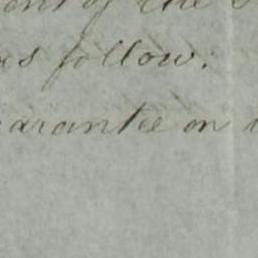 of the
as follow:
arantee on